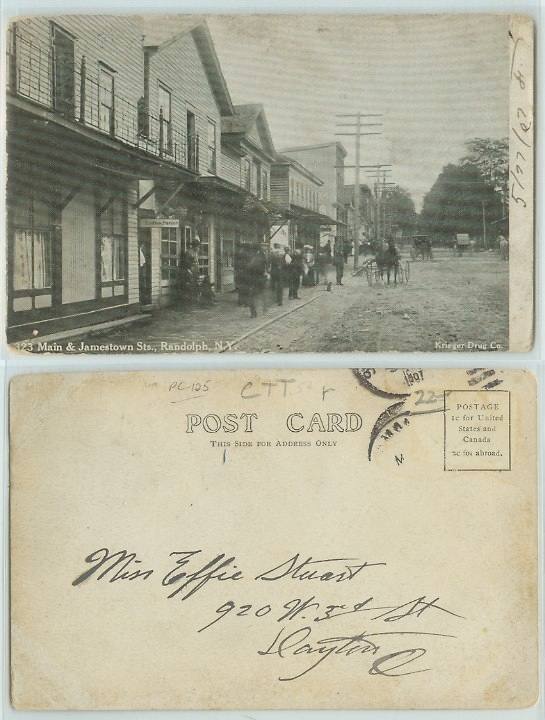 5/27/07
123 Main & Jamestown Sts., Randolph, N.Y.
Krieger Drug Co.
PC-125
CTT
1907
22-
POST CARD
THIS SIDE FOR ADDRESS ONLY
POSTAGE
1c for United
States and
Canada
2c for abroad.
Miss Effie Stuart
920 W. 3rd St
Dayton O